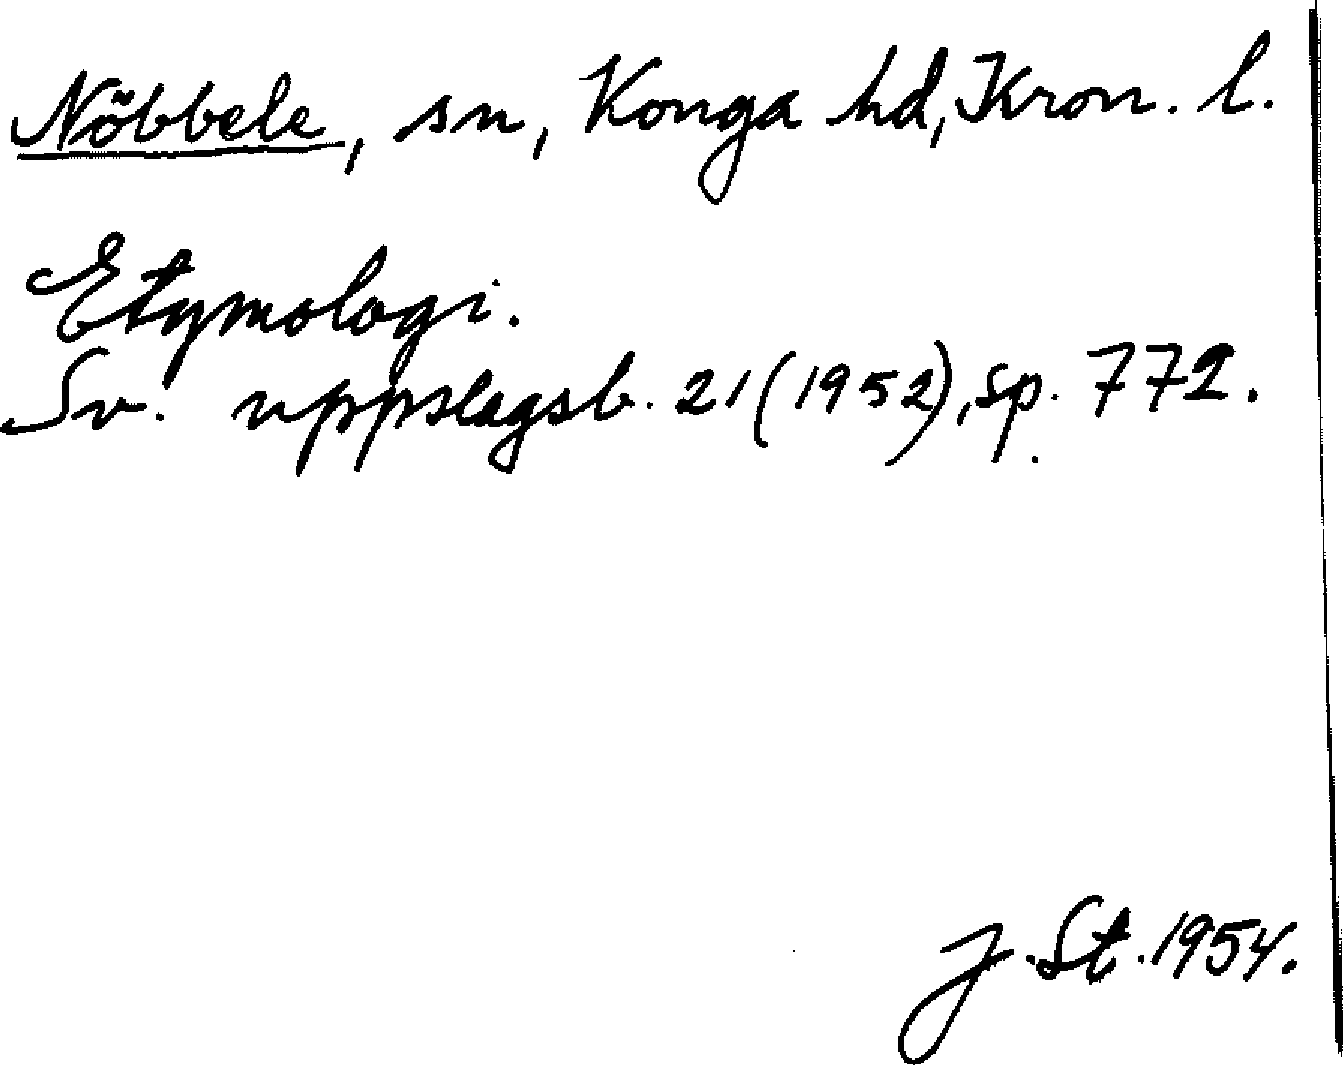 Nöbbele, sn, Konga hd, Kron. l.
Etymologi.
Sv. uppslagsb. 21 (1952), sp. 772.
J. St. 1954.